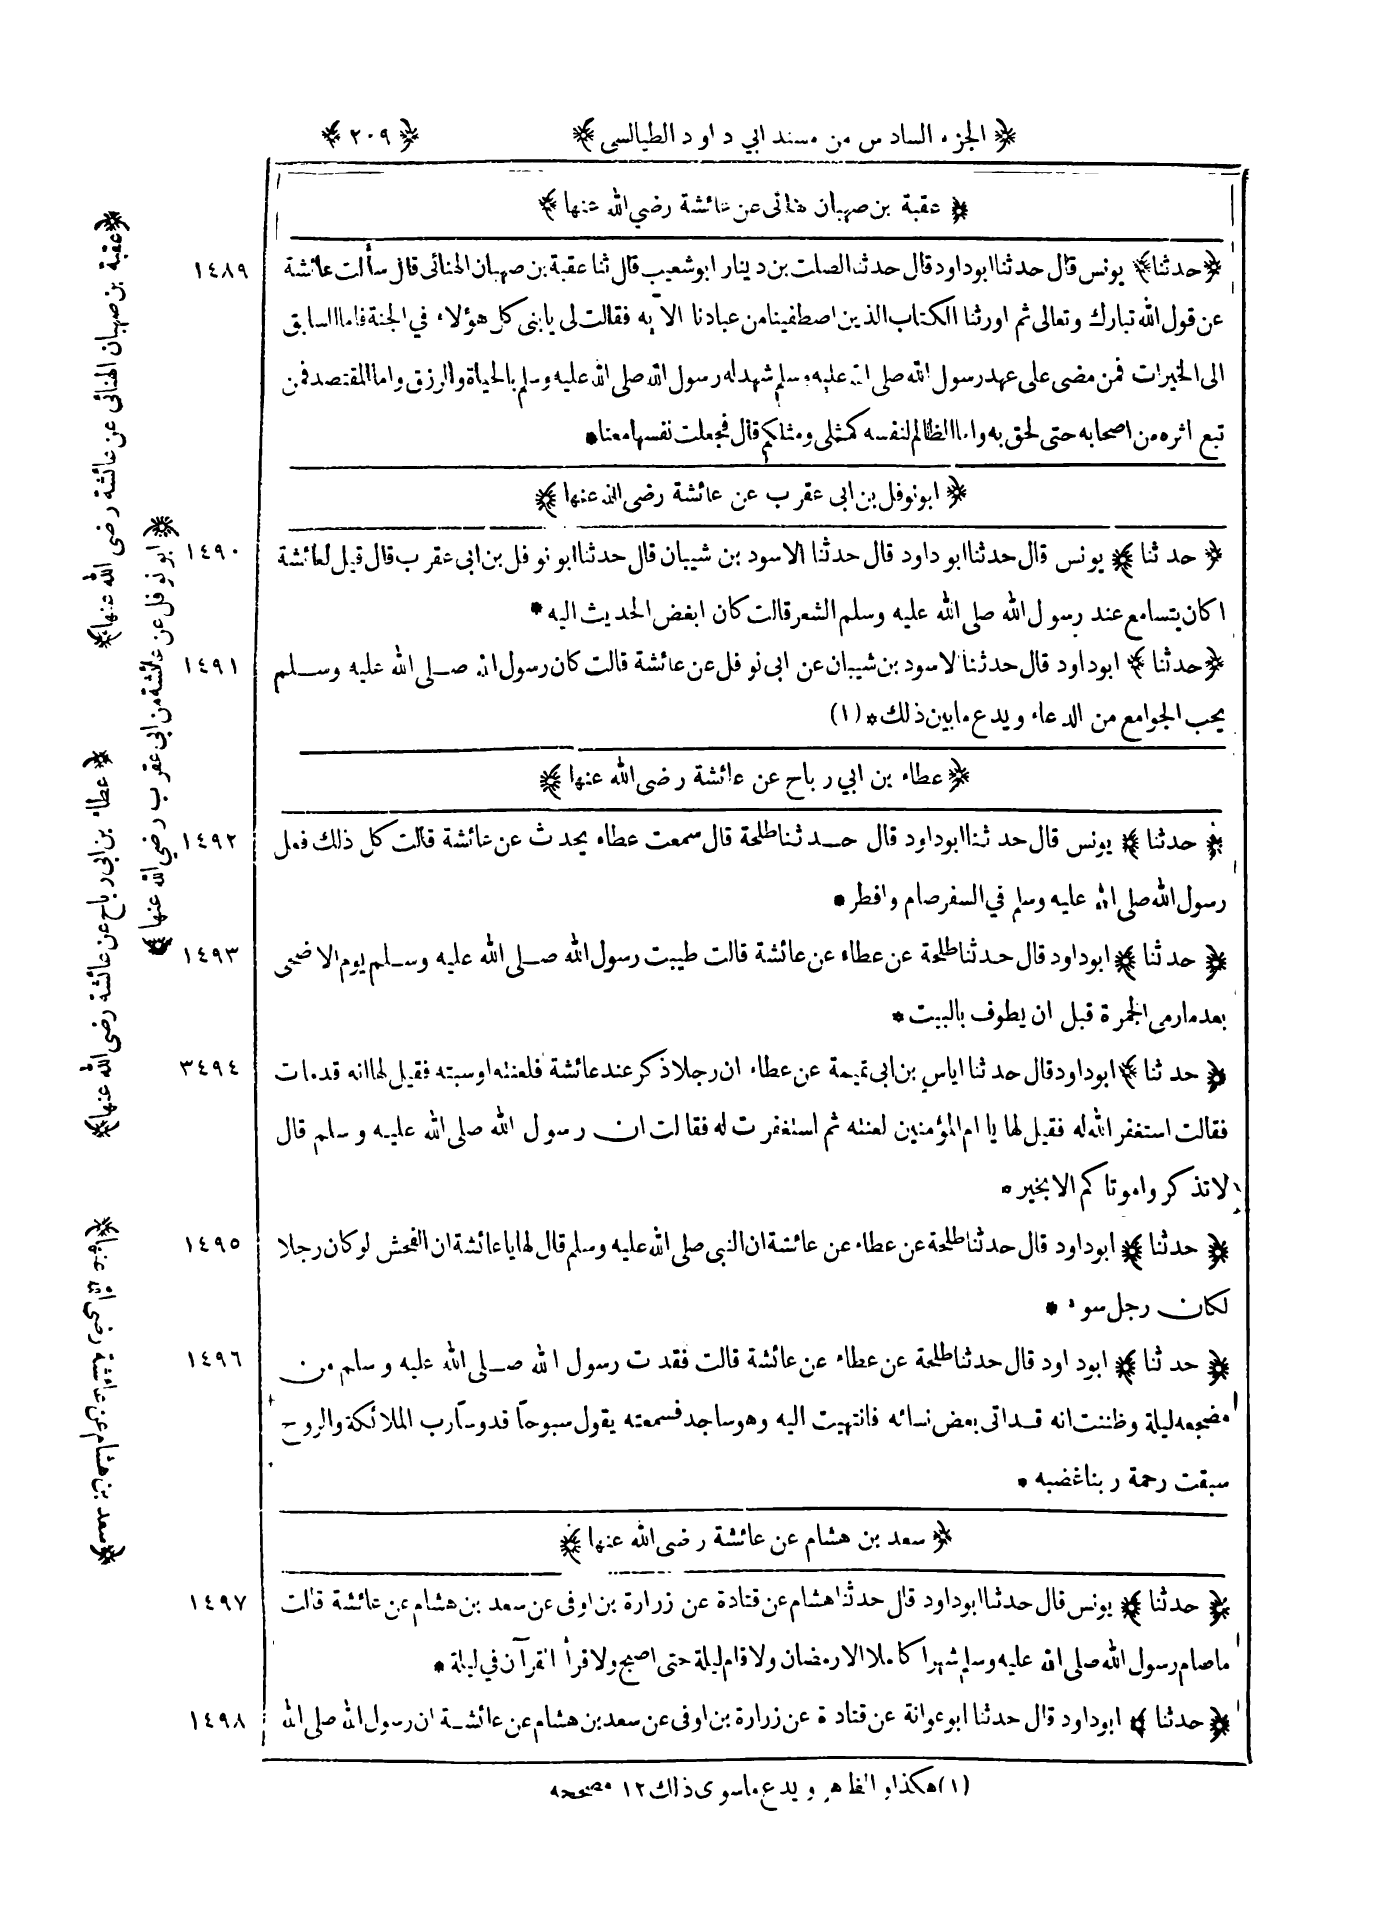 ﴿ الجزء السادس من مسند ابي داود الطيالسى ﴾ ﴿ ٢٠٩ ﴾
﴿ عقبة بن صهبان هنائى عن عائشة رضي الله عنها ﴾
١٤٨٩ ﴿ حدثنا ﴾ يونس قال حدثنا ابوداود قال حدثنا الصلت بن دينار ابو شعيب قال ثنا عقبة بن صهبان الهنائى قال سألت عائشة
عن قول الله تبارك وتعالى ثم اورثنا الكتاب الذين اصطفينا من عبادنا الآيه فقالت لى يابنى كل هؤلاء في الجنة فاما السابق
الى الخيرات فمن مضى على عهد رسول الله صلى الله عليه وسلم شهد له رسول الله صلى الله عليه وسلم بالحياة والرزق واما المقتصد فمن
تبع اثره من اصحابه حتى لحق به واما الظالم لنفسه كمثلى ومثلكم قال فجعلت نفسها معنا *
﴿ ابو نوفل بن ابى عقرب عن عائشة رضى الله عنها ﴾
١٤٩٠ ﴿ حدثنا ﴾ يونس قال حدثنا ابو داود قال حدثنا الاسود بن شيبان قال حدثنا ابو نوفل بن ابى عقرب قال قيل لعائشة
اكان يتسامع عند رسول الله صلى الله عليه وسلم الشعر قالت كان ابغض الحديث اليه *
١٤٩١ ﴿ حدثنا ﴾ ابوداود قال حدثنا لاسود بن شيبان عن ابى نوفل عن عائشة قالت كان رسول الله صلى الله عليه وسلم
يحب الجوامع من الدعاء ويدع مابين ذلك * (١)
﴿ عطاء بن ابي رباح عن عائشة رضى الله عنها ﴾
١٤٩٢ ﴿ حدثنا ﴾ يونس قال حدثنا ابوداود قال حدثنا طلحة قال سمعت عطاء يحدث عن عائشة قالت كل ذلك فعل
رسول الله صلى الله عليه وسلم في السفر صام وافطر *
١٤٩٣ ﴿ حدثنا ﴾ ابوداود قال حدثنا طلحة عن عطاء عن عائشة قالت طيبت رسول الله صلى الله عليه وسلم يوم الاضحى
بعد مارمى الجمرة قبل ان يطوف بالبيت *
٣٤٩٤ ﴿ حدثنا ﴾ ابوداود قال حدثنا اياس بن ابى تميمة عن عطاء ان رجلا ذكر عند عائشة فلعنته اوسبته فقيل لها انه قدمات
فقالت استغفر الله له فقيل لها يا ام المؤمنين لعنته ثم استغفرت له فقالت ان رسول الله صلى الله عليه وسلم قال
لا تذكروا موتاكم الا بخير *
١٤٩٥ ﴿ حدثنا ﴾ ابوداود قال حدثنا طلحة عن عطاء عن عائشة ان النبى صلى الله عليه وسلم قال لها يا عائشة ان الفحش لو كان رجلا
لكان رجل سوء *
١٤٩٦ ﴿ حدثنا ﴾ ابوداود قال حدثنا طلحة عن عطاء عن عائشة قالت فقدت رسول الله صلى الله عليه وسلم من
مضجعه ليلة وظننت انه قد اتى بعض نسائه فانتهيت اليه وهو ساجد فسمعته يقول سبوحاً قدوساً رب الملائكة والروح
سبقت رحمة ربنا غضبه *
﴿ سعد بن هشام عن عائشة رضى الله عنها ﴾
١٤٩٧ ﴿ حدثنا ﴾ يونس قال حدثنا ابوداود قال حدثنا هشام عن قتادة عن زرارة بن اوفى عن سعد بن هشام عن عائشة قالت
ماصام رسول الله صلى الله عليه وسلم شهرا كاملا الا رمضان ولا قام ليلة حتى اصبح ولا قرأ القرآن في ليلة *
١٤٩٨ ﴿ حدثنا ﴾ ابوداود قال حدثنا ابو عوانة عن قتادة عن زرارة بن اوفى عن سعد بن هشام عن عائشة ان رسول الله صلى الله
(١) هكذا والظاهر ويدع ماسوى ذلك ١٢ مصححه
﴿ عقبة بن صهبان الهنائى عن عائشة رضى الله عنها ﴾
﴿ ابو نوفل عن عائشة من ابى عقرب رضي الله عنها ﴾
﴿ عطاء بن ابى رباح عن عائشة رضى الله عنها ﴾
﴿ سعد بن هشام عن عائشة رضى الله عنها ﴾